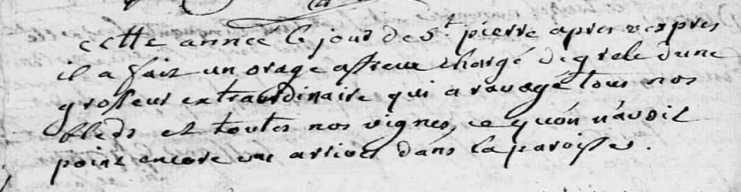 cette annee le jour de st pierre apres vespres
il a fait un orage affreux chargé de grele d'une
grosseur extraordinaire qui a ravagé tous nos
bleds et toutes nos vignes, ce qu'on n'avoit
point encore vue arriver dans la paroisse.